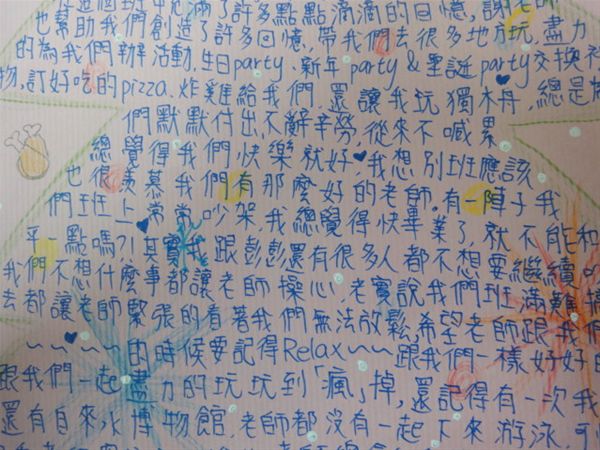 這個班中也滿了許多點點滴滴的回憶,謝老師
也幫助我們創造了許多回憶,帶我們去很多地方玩,盡力
的為我們辦活動,生日party.新年party&聖誕party交換禮
物,訂好吃的pizza.炸雞給我們.還讓我玩獨木舟,總是
們默默付出,不辭辛勞,從來不喊累
總覺得我們快樂就好,我想別班應該
也很羨慕我們有那麼好的老師.有一陣子我
們班上常常吵架,我總覺得快畢業了,就不能和
平一點嗎?!其實我跟彭彭還有很多人都不想要繼續吵
我們不想什麼事都讓老師操心,老實說我們班滿難搞
去都讓老師緊張的看著我們無法放鬆,希望老師跟我們
~~~~的時候要記得Relax~~跟我們一樣好好的
跟我們一起盡力的玩玩到「瘋」掉,還記得有一次我
還有自來水博物館,老師都沒有一起下來游泳,可